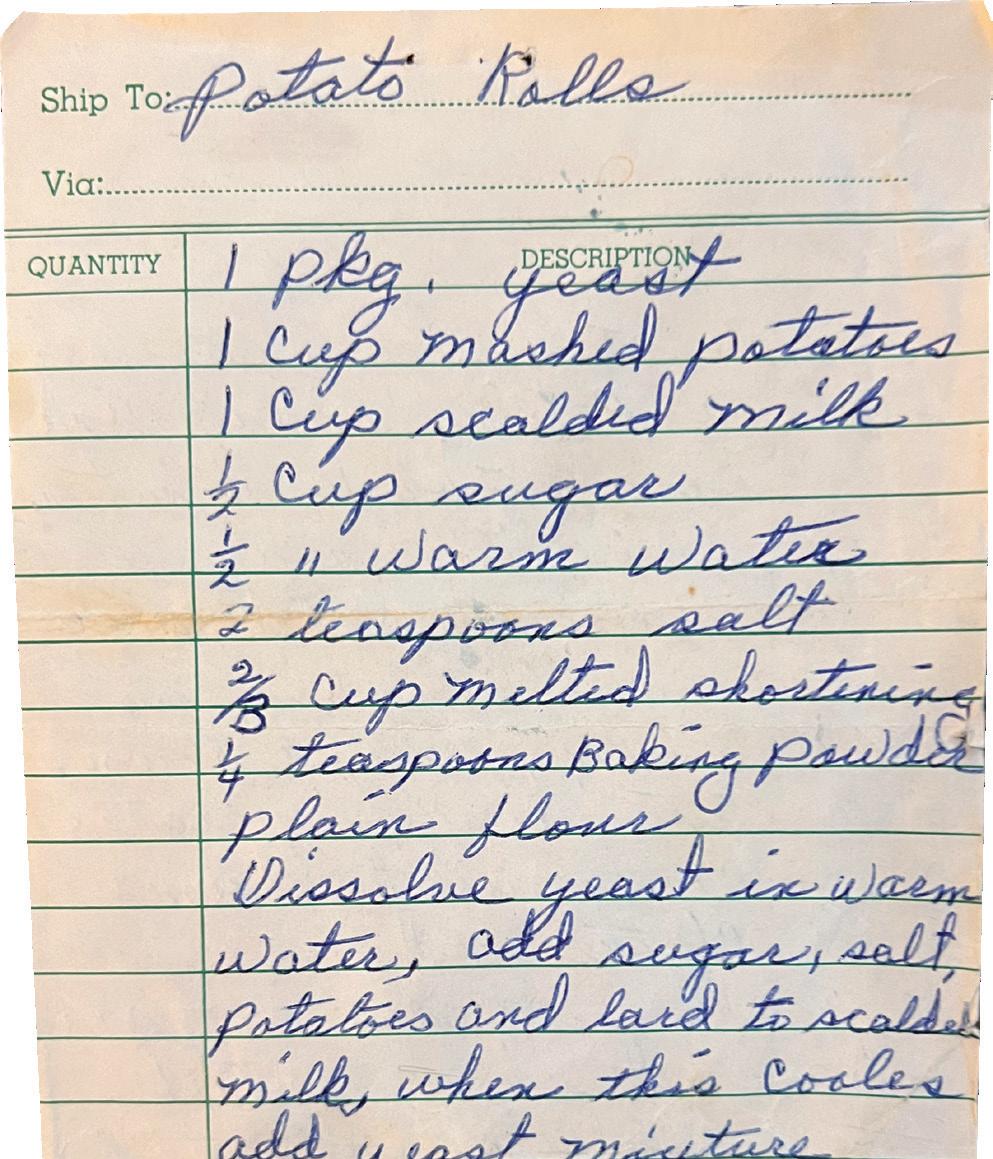 Ship To: Potato Rolls
Via:
QUANTITY DESCRIPTION
1 pkg. yeast
1 Cup mashed potatoes
1 Cup scalded milk
1/2 Cup sugar
1/2 " warm water
2 teaspoons salt
2/3 Cup melted shortening
1/4 teaspoons Baking powder
plain flour
Dissolve yeast in warm
water, add sugar, salt,
potatoes and lard to scalded
milk, when this cooles
add yeast mixture